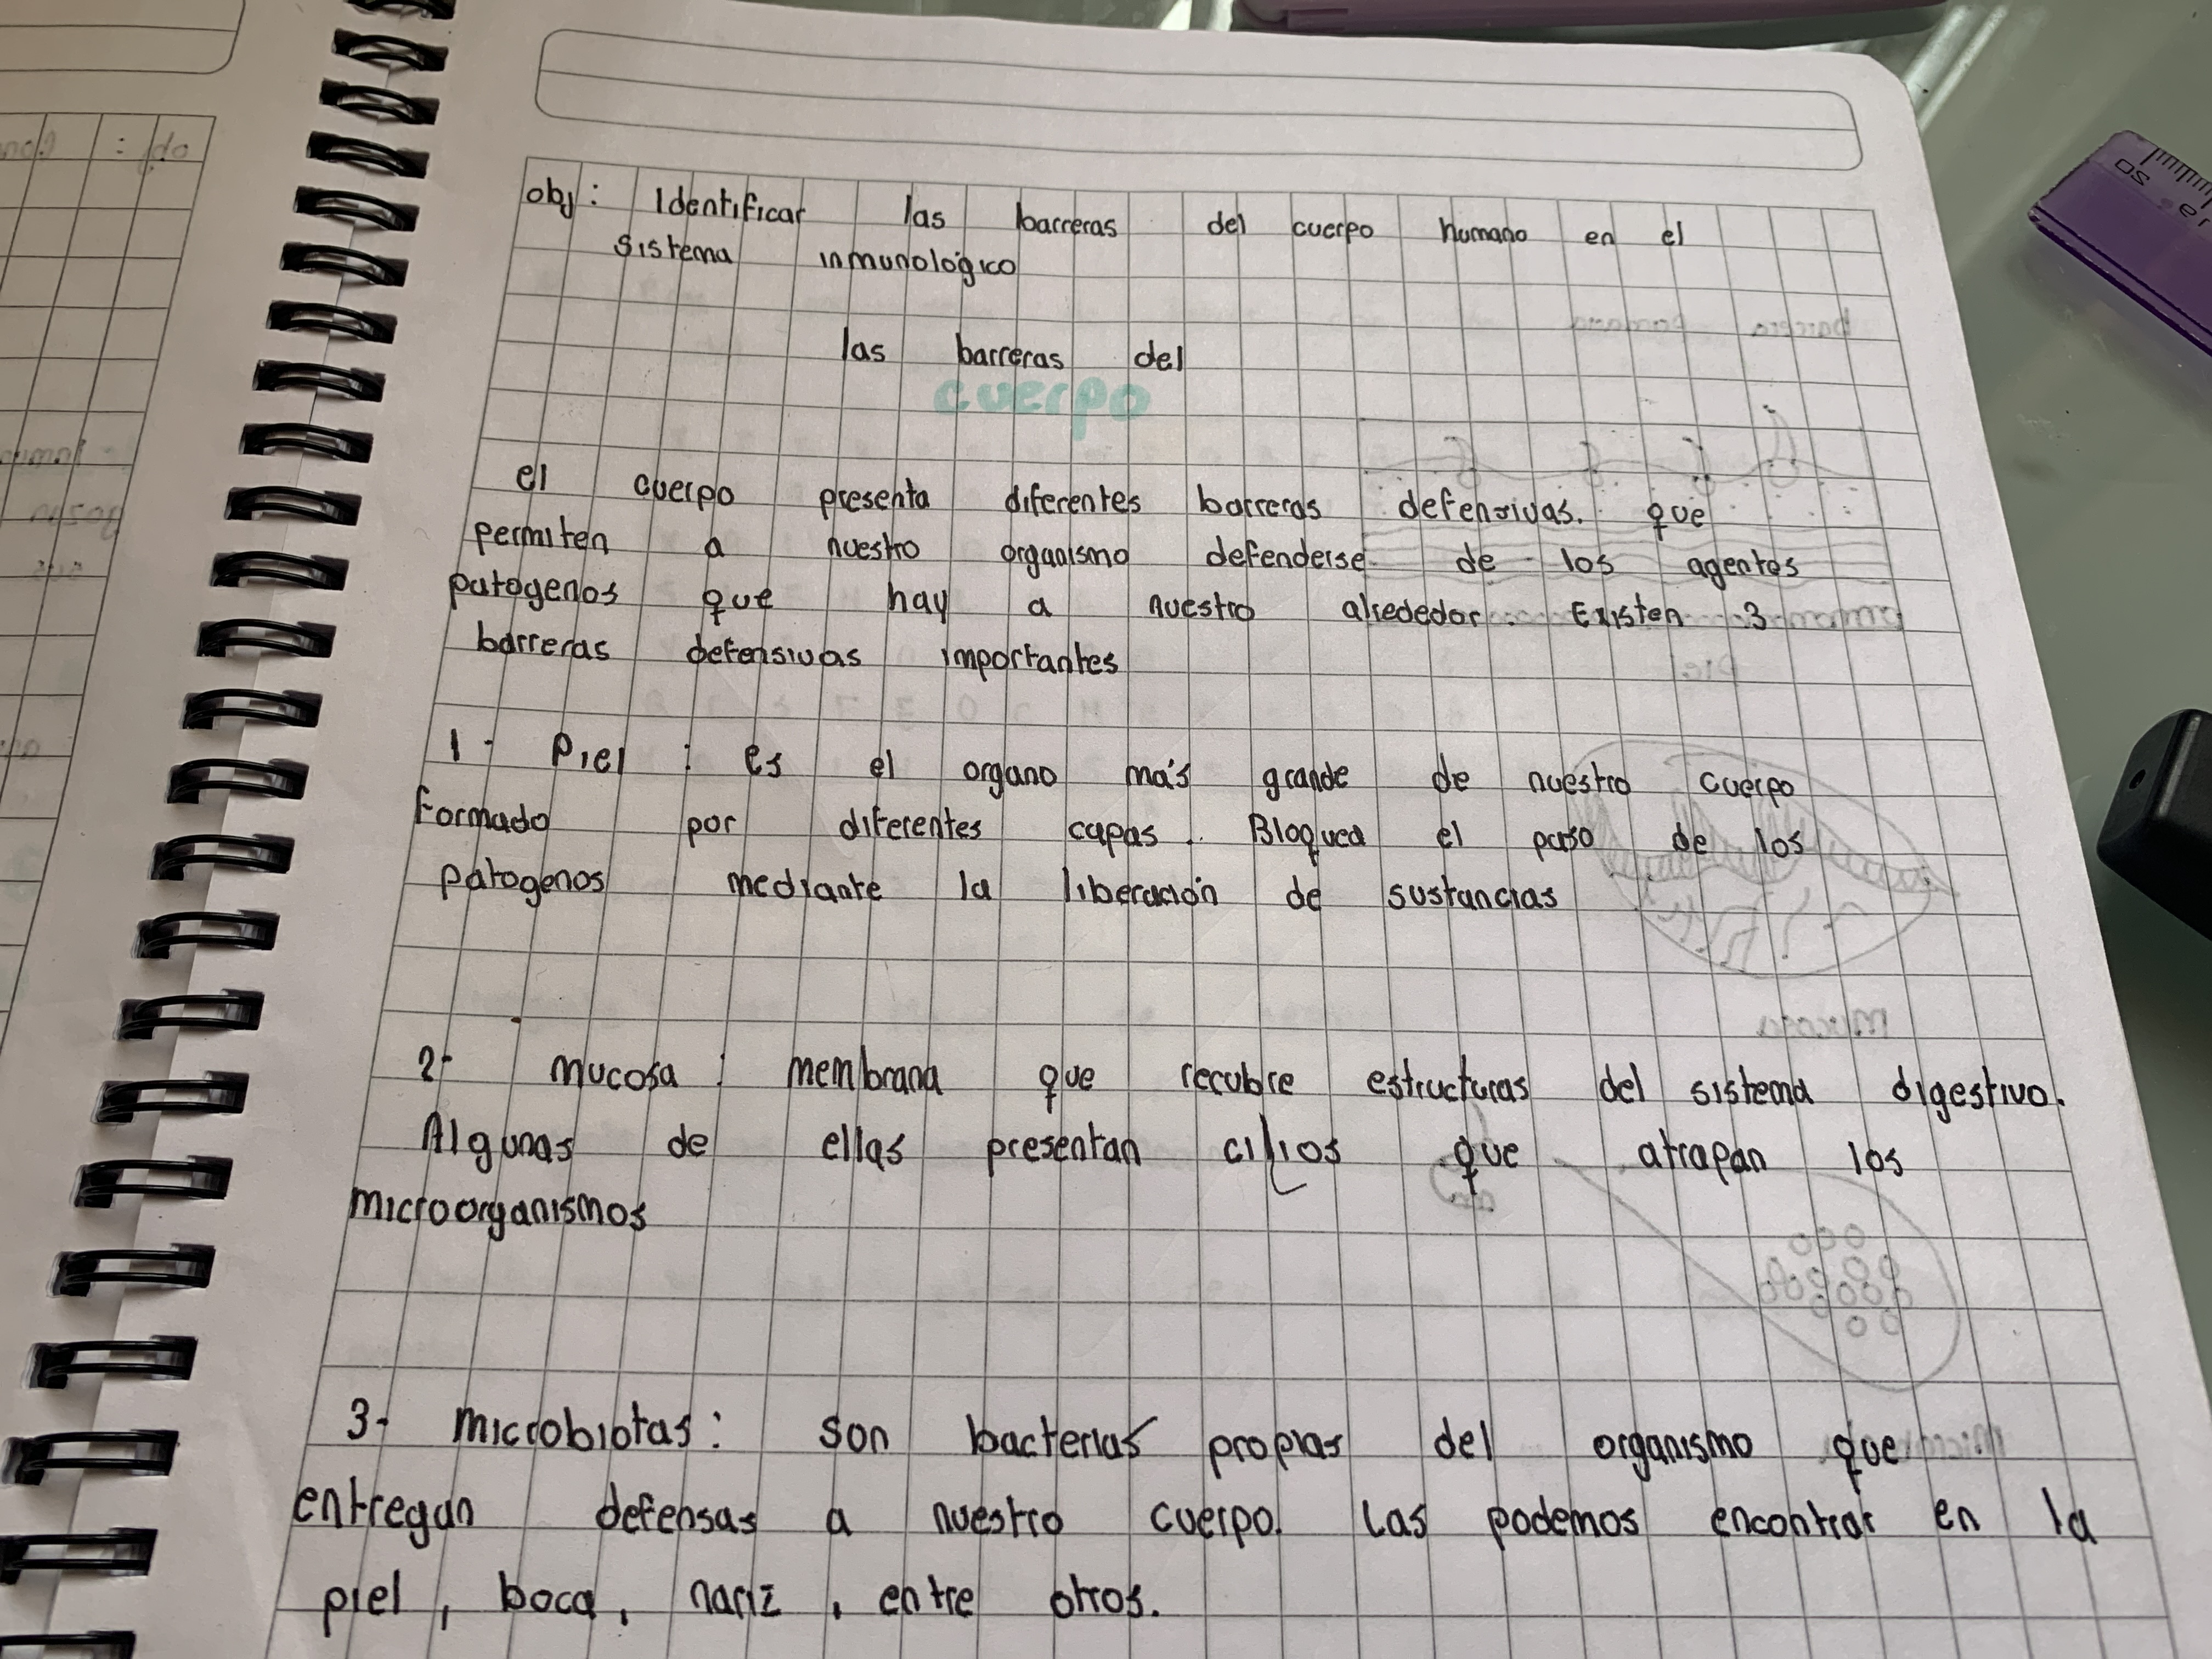 obj: Identificar las barreras del cuerpo humano en el
sistema inmunológico
las barreras del
cuerpo
el cuerpo presenta diferentes barreras defensivas. que
permiten a nuestro organismo defenderse de los agentes
patogenos que hay a nuestro alrededor. Existen 3
barreras defensivas importantes
1. Piel : es el organo más grande de nuestro cuerpo
formado por diferentes capas. Bloquea el paso de los
patogenos mediante la liberación de sustancias
2. mucosa : membrana que recubre estructuras del sistema digestivo.
Algunas de ellas presentan cilios que atrapan los
microorganismos
3. microbiotas : son bacterias propias del organismo que
entregan defensas a nuestro cuerpo. las podemos encontrar en la
piel, boca, nariz, entre otros.